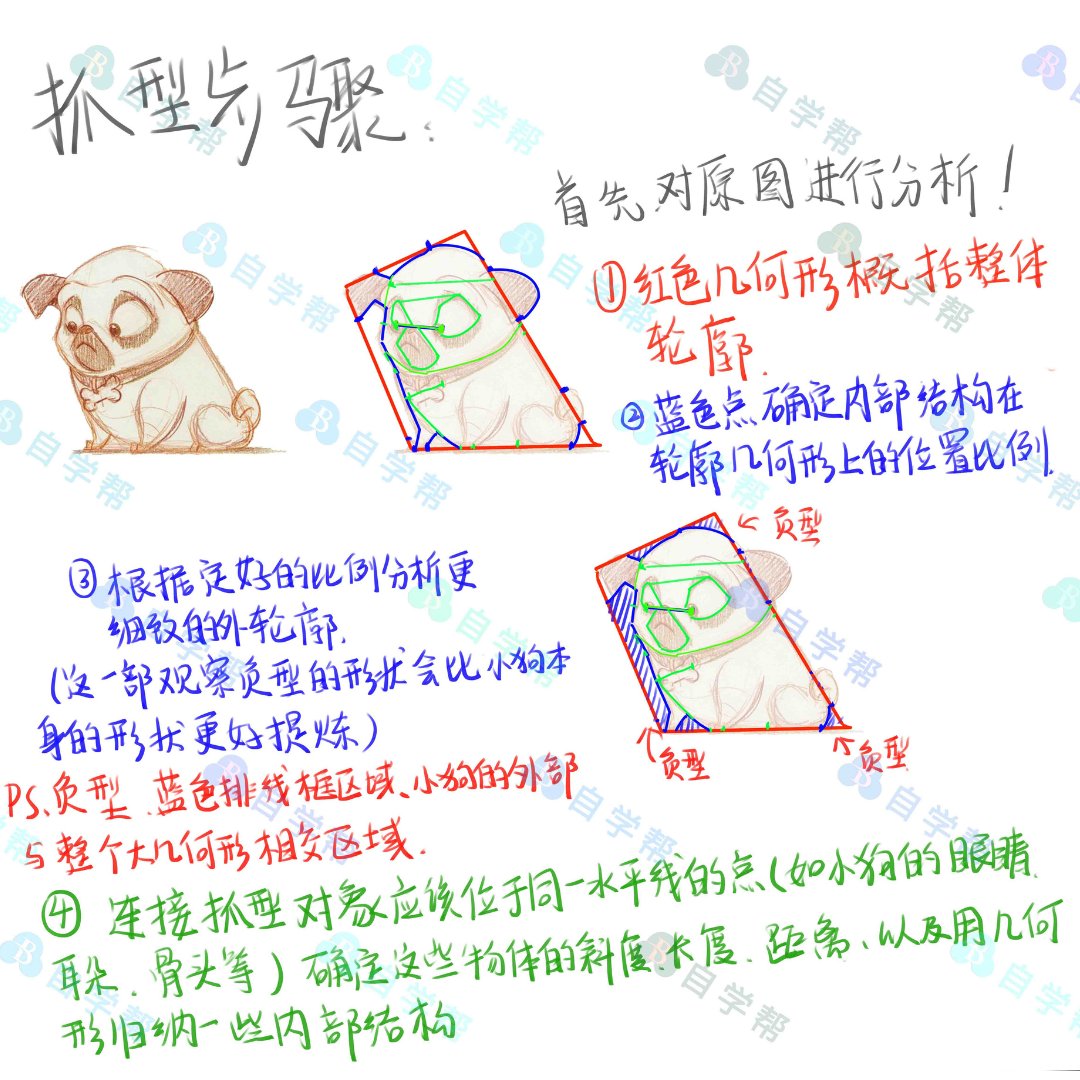 抓型步骤：
首先、对原图进行分析！
①红色几何形概括整体
轮廓.
②蓝色点确定内部结构在
轮廓几何形上的位置比例.
←负型
③根据定好的比例分析更
细致的外轮廓.
(这一部观察负型的形状会比小狗本
身的形状更好提炼)
负型
负型
PS、负型、蓝色排线框区域、小狗的外部
与整个大几何形相交区域.
④连接抓型对象应该位于同一水平线的点(如小狗的眼睛、
耳朵、骨头等)确定这些物体的斜度、长度、距离、以及用几何
形归纳一些内部结构
自学帮